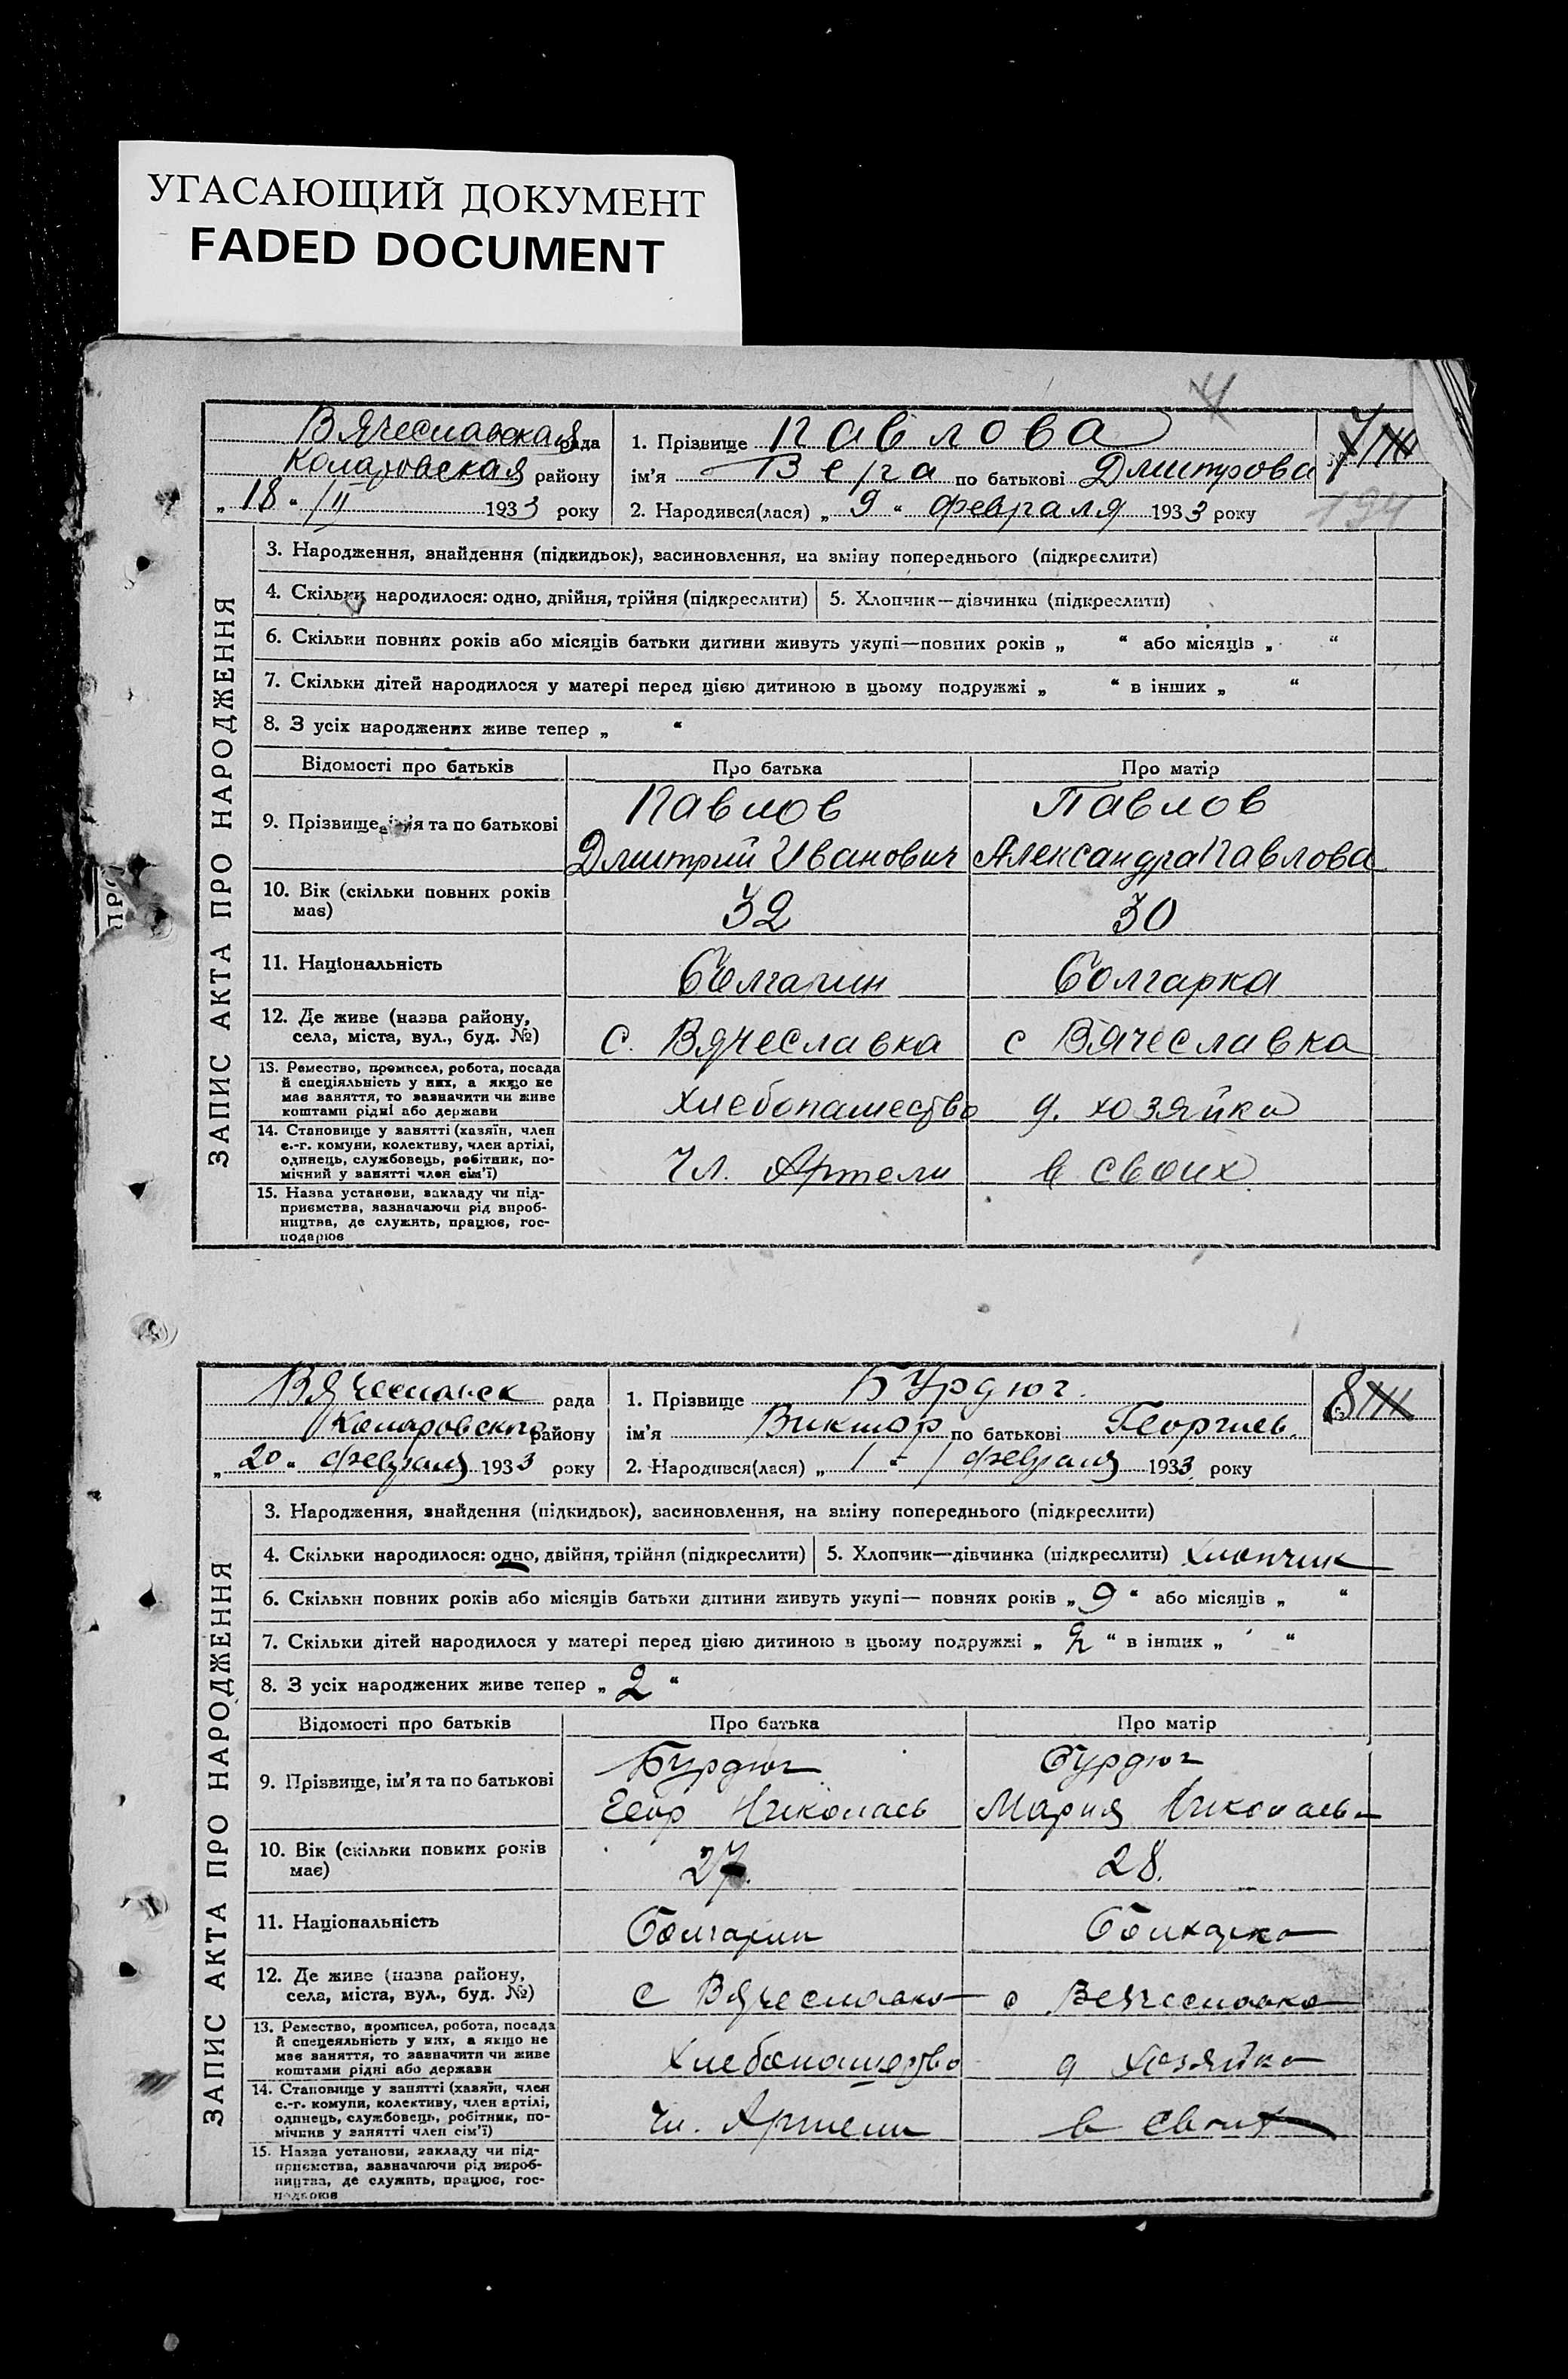 УГАСАЮЩИЙ ДОКУМЕНТ
FADED DOCUMENT
Вячеславская рада
Коларовская району
„ 18 “ /II 1933 року
1. Прізвище Павлова
ім'я Вера по батькові Дмитрова
2. Народився(лася) „ 9 “ февраля 1933 року
7
194
ЗАПИС АКТА ПРО НАРОДЖЕННЯ
3. Народження, знайдення (підкидьок), засиновлення, на зміну попереднього (підкреслити)
4. Скільки народилося: одно, двійня, трійня (підкреслити)
5. Хлопчик—дівчинка (підкреслити)
6. Скільки повних років або місяців батьки дитини живуть укупі—повних років „ “ або місяців „ “
7. Скільки дітей народилося у матері перед цією дитиною в цьому подружжі „ “ в інших „ “
8. З усіх народжених живе тепер „ “
Відомості про батьків
Про батька
Про матір
9. Прізвище, ім'я та по батькові
Павлов
Дмитрий Иванович
Павлов
Александра Павлова
10. Вік (скільки повних років
має)
32
30
11. Національність
Болгарин
Болгарка
12. Де живе (назва району,
села, міста, вул., буд. №)
с. Вячеславка
с Вячеславка
13. Ремество, промисел, робота, посада
й спеціяльність у них, а якщо не
має заняття, то зазначити чи живе
коштами рідні або держави
Хлебопашество
д. хозяйка
14. Становище у занятті (хазяїн, член
с.-г. комуни, колективу, член артілі,
одинець, службовець, робітник, по-
мічний у занятті член сім'ї)
Чл. Артели
в своих
15. Назва установи, закладу чи під-
приємства, зазначаючи рід вироб-
ництва, де служить, працює, гос-
подарює
Вячеславск рада
Коларовского району
„ 20 “ февраля 1933 року
1. Прізвище Бурдюг.
ім'я Виктор по батькові Георгиев.
2. Народився(лася) „ 1 “ февраля 1933 року
8
ЗАПИС АКТА ПРО НАРОДЖЕННЯ
3. Народження, знайдення (підкидьок), засиновлення, на зміну попереднього (підкреслити)
4. Скільки народилося: одно, двійня, трійня (підкреслити)
5. Хлопчик—дівчинка (підкреслити) Хлопчик
6. Скільки повних років або місяців батьки дитини живуть укупі— повних років „ 9 “ або місяців „ “
7. Скільки дітей народилося у матері перед цією дитиною в цьому подружжі „ 2 “ в інших „ “
8. З усіх народжених живе тепер „ 2 “
Відомості про батьків
Про батька
Про матір
9. Прізвище, ім'я та по батькові
Бурдюг
Николаев
Бурдюг
Мария Николаевн
10. Вік (скільки повних років
має)
27.
28.
11. Національність
Болгарин
Болгарка
12. Де живе (назва району,
села, міста, вул., буд. №)
с Вячеславка
с Вячеславка
13. Ремество, промисел, робота, посада
й спецеяльність у них, а якщо не
має заняття, то зазначити чи живе
коштами рідні або держави
Хлебопашество
д хозяйка
14. Становище у занятті (хазяїн, член
с.-г. комуни, колективу, член артілі,
одинець, службовець, робітник, по-
мічний у занятті член сім'ї)
Чл. Артели
в своих
15. Назва установи, закладу чи під-
приємства, зазначаючи рід вироб-
ництва, де служить, працює, гос-
подарює